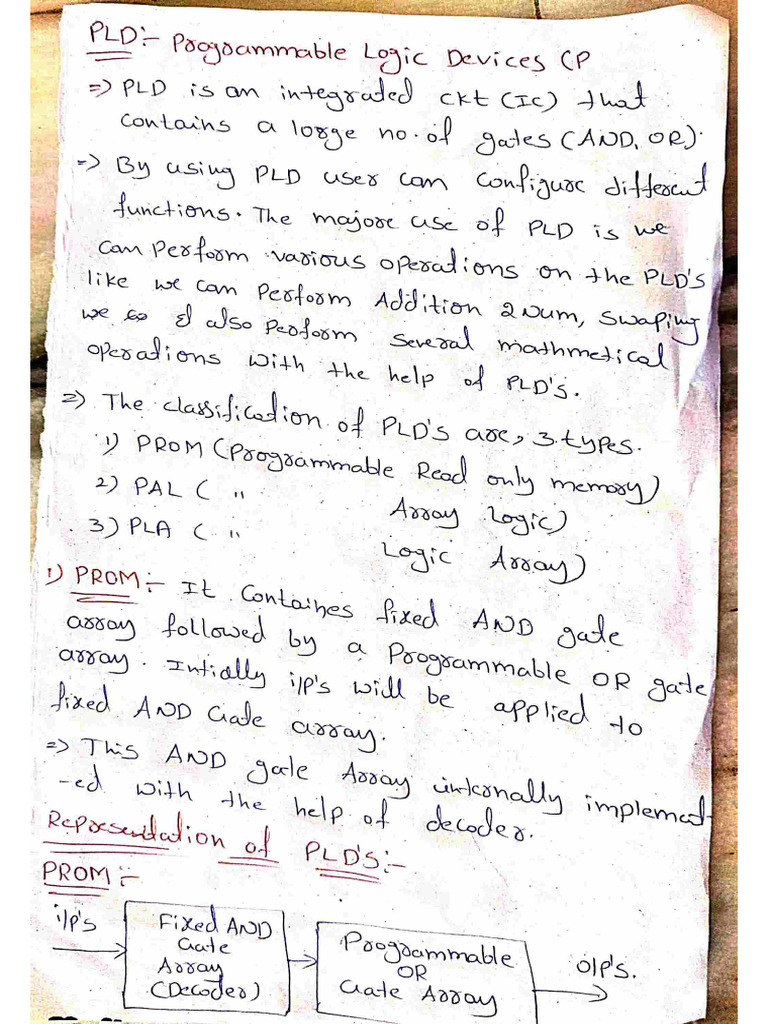 PLD:- Programmable Logic Devices (P
=> PLD is an integrated ckt (Ic) that
contains a large no. of gates (AND, OR).
=> By using PLD user can configure different
functions. The majore use of PLD is we
can perform various operations on the PLD's
like we can perform Addition 2 Num, swaping
we also perform several mathmetical
operations with the help of PLD's.
=> The classification of PLD's are, 3 types.
1) PROM (Programmable Read only memory)
2) PAL ( " Array Logic)
3) PLA ( " Logic Array)
1) PROM:- It Containes fixed AND gate
array followed by a Programmable OR gate
array. Intially i/p's will be applied to
fixed AND Gate array.
=> This AND gate Array internally implement
-ed with the help of decoder.
Representation of PLD'S:-
PROM:-
i/p's
Fixed AND
Gate
Array
(Decoder)
Programmable
OR
Gate Array
O/P's.